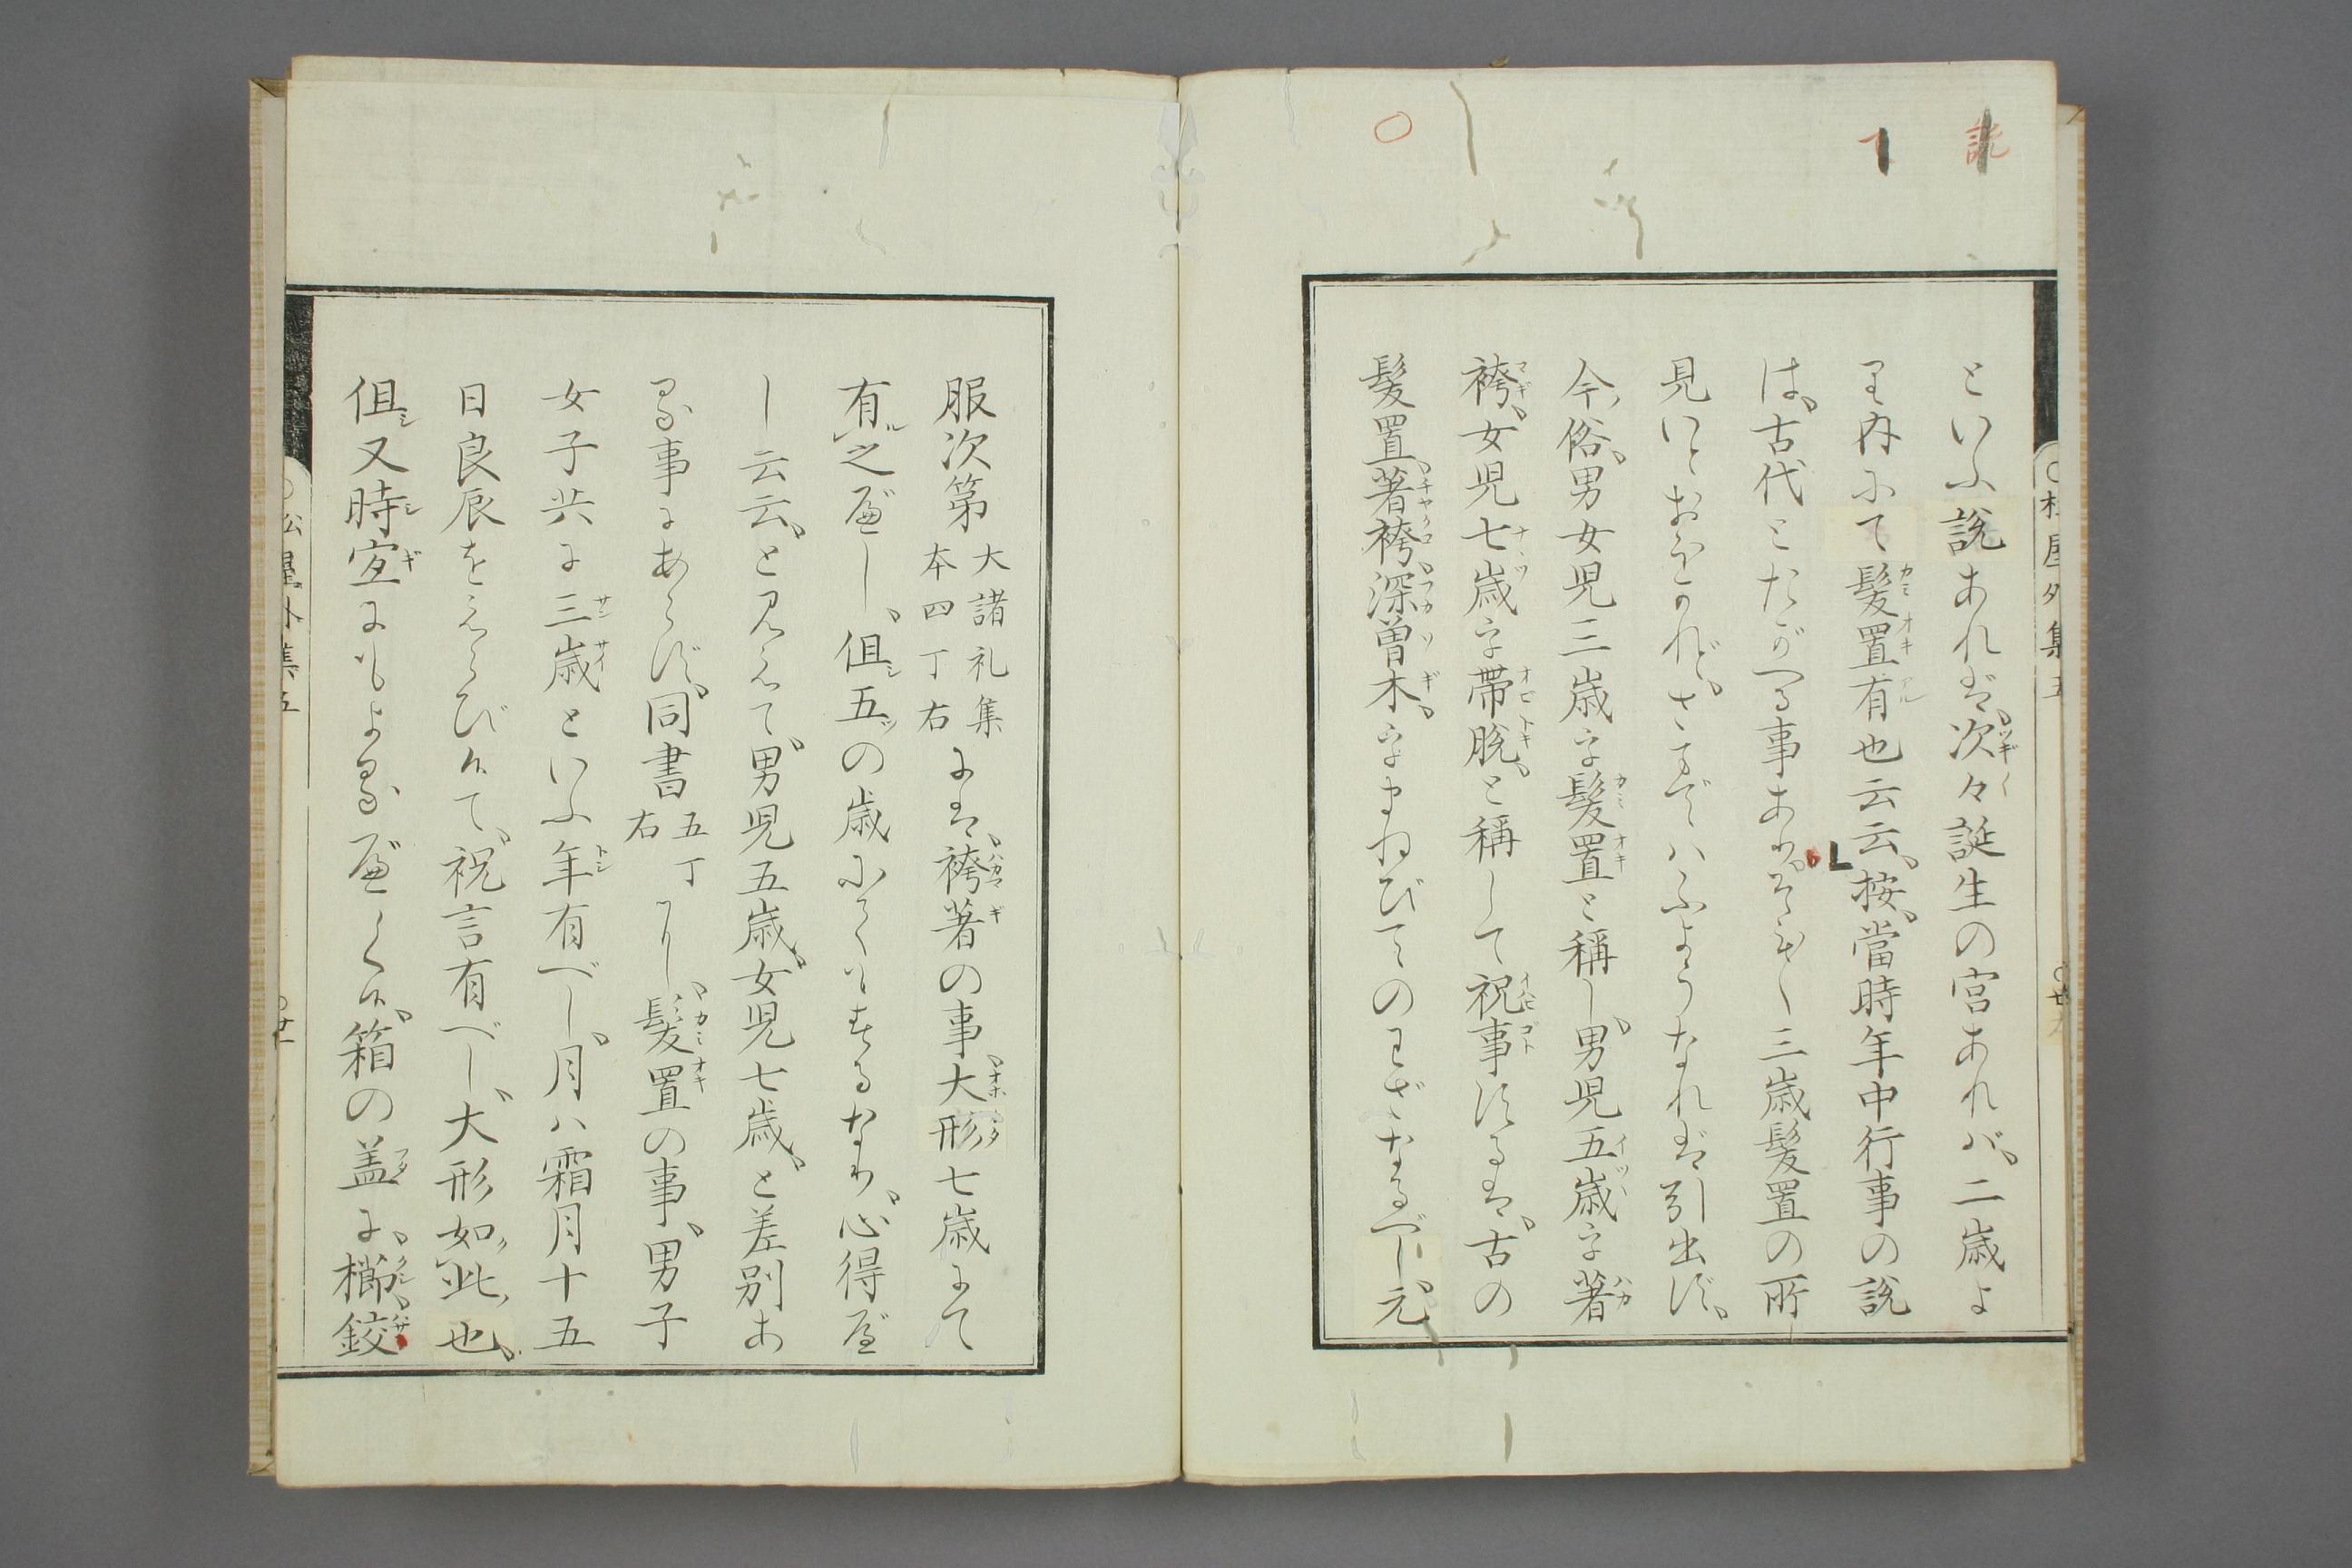 説
て
といふ説あれば、次々誕生の宮あれバ、二歳よ
り内にて髪置有也云云、按、當時年中行事の説
は、古代とたがへる事あり、そも〱三歳髪置の所
見いとおほかれど、さまでハいふようなければ引出ず、
今俗、男女児三歳を髪置と稱し、男児五歳を著
袴、女児七歳を帯脱、と稱して祝事するは、古の
髪置、著袴、深曽木、をまねびてのわざなるべし、元
服次第大諸礼集本四丁右には、袴著の事、大形七歳にて
有之べし、但五ツの歳にてもするなり、心得べ
し云云、と見えて、男児五歳、女児七歳、と差別あ
る事にあらず、同書五丁右に、髪置の事、男子
女子共に三歳といふ年有べし、月ハ霜月十五
日良辰をえらび候て、祝言有べし、大形如此也、
但又時宜にもよるべく候、箱の盖に、櫛、鋏
○松屋外集五
○廿一